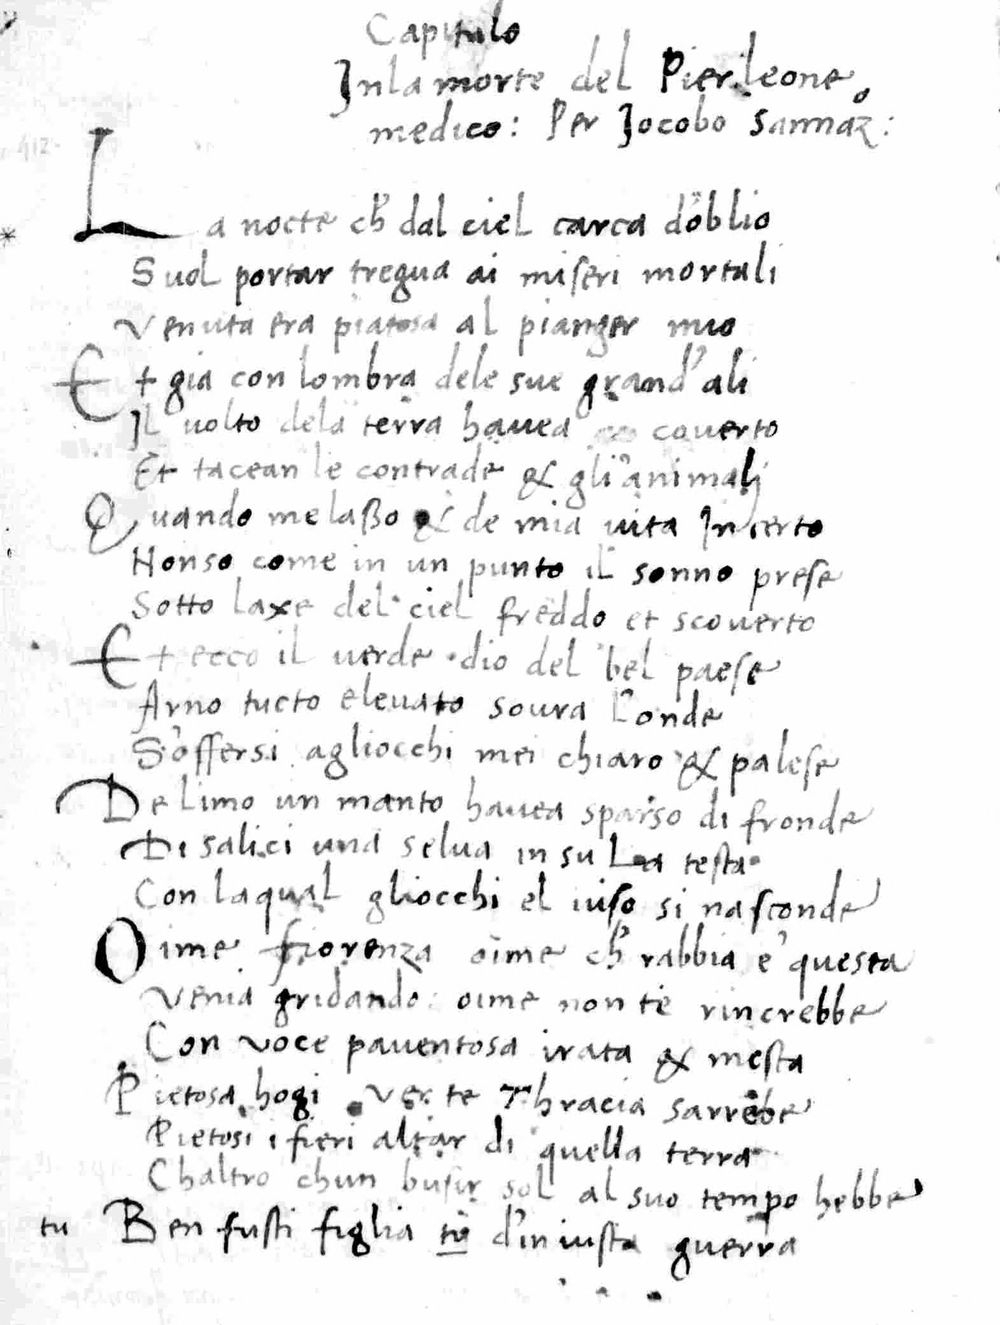 Capitulo
In la morte del Pier leone
medico: Per Jacobo Sannaz:
La nocte ch' dal ciel carca d'oblio
Suol portar tregua ai miseri mortali
Venuta era piatosa al pianger mio
Et gia con lombra dele sue grand' ali
Il volto dela terra havea coverto
Et tacean le contrade & gli animali
Quando me laßo & de mia vita Incerto
Non so come in un punto il sonno prese
Sotto laxe del ciel freddo et scoverto
Et ecco il verde dio del bel paese
Arno tucto elevato sovra l'onde
S'offersi agliocchi mei chiaro & palese
De limo un manto havea sparso di fronde
Di salici una selva in su La testa
Con laqual gliocchi el viso si nasconde
Oime fiorenza oime ch' rabbia e' questa
Venia gridando: oime non te rincrebbe
Con voce paventosa irata & mesta
Pietosa hogi ver te Thracia sarrebe
Pietosi i fieri altar di quella terra
Chaltro chun busir sol al suo tempo hebbe
tu Ben fusti figlia tu d'iniusta guerra